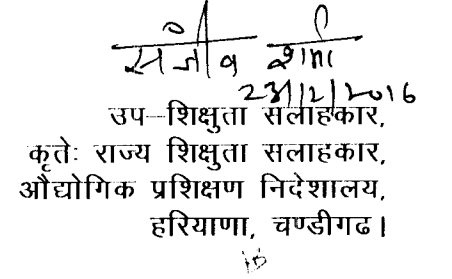 संजीव शर्मा
23/12/2016
उप-शिक्षुता सलाहकार,
कृतेः राज्य शिक्षुता सलाहकार,
औद्योगिक प्रशिक्षण निदेशालय,
हरियाणा, चण्डीगढ।